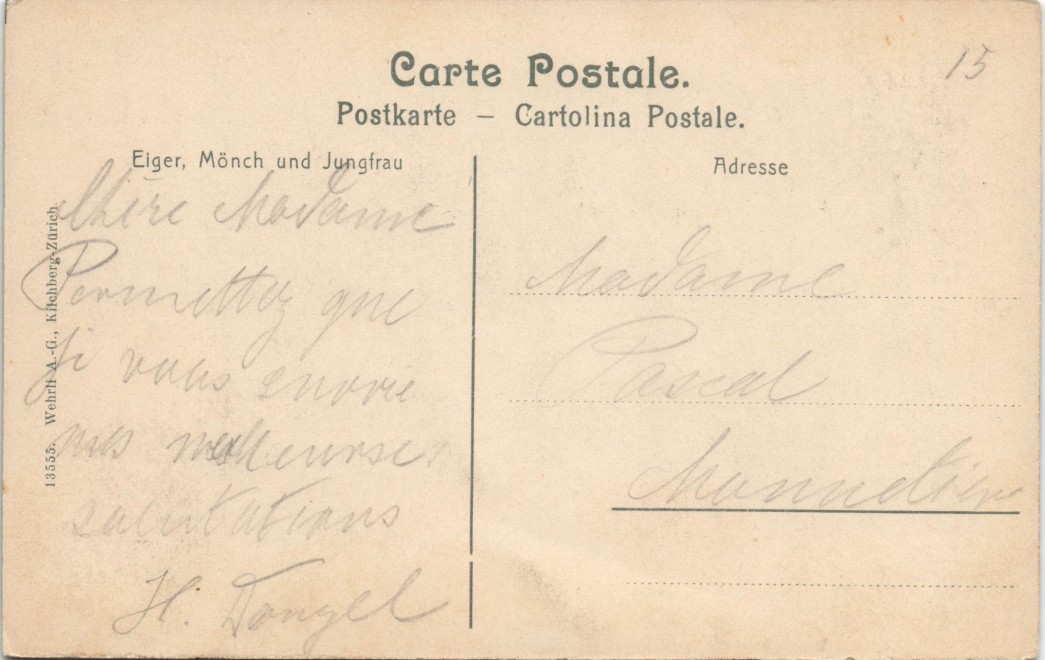 Carte Postale.
15
Postkarte – Cartolina Postale.
Eiger, Mönch und Jungfrau
Adresse
13555. Wehrli A.-G., Kilchberg-Zürich
Chère Madame
Permettez que
je vous envoie
mes meilleurses
salutations
H.
Madame
Pascal